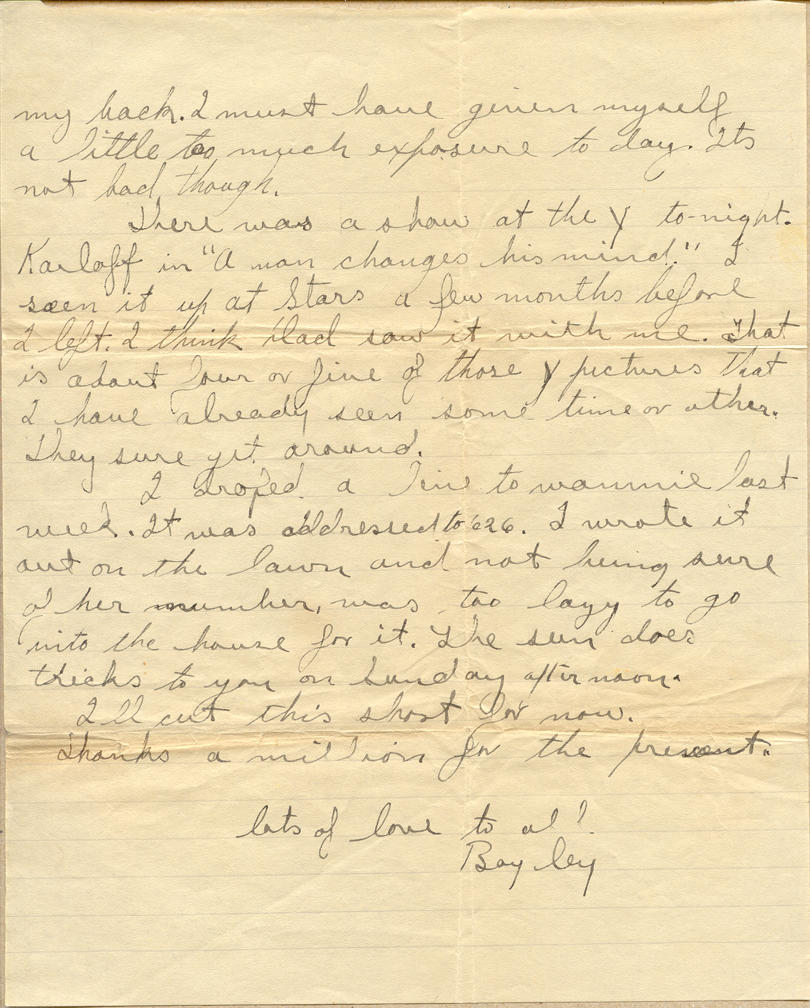 my back. I must have given myself
a little too much exposure to day. Its
not bad though.
There was a show at the Y to-night.
Karloff in "A man changes his mind." I
seen it up at Stars a few months before
I left. I think Dad saw it with me. That
is about four or five of those Y pictures that
I have already seen some time or other.
They sure get around.
I droped a line to wannie last
week. It was addressed to 626. I wrote it
out on the lawn and not being sure
of her number, was too lazy to go
into the house for it. The sun does
tricks to you on Sunday afternoon.
I'll cut this short for now.
Thanks a million for the present.
lots of love to al!
Bayley